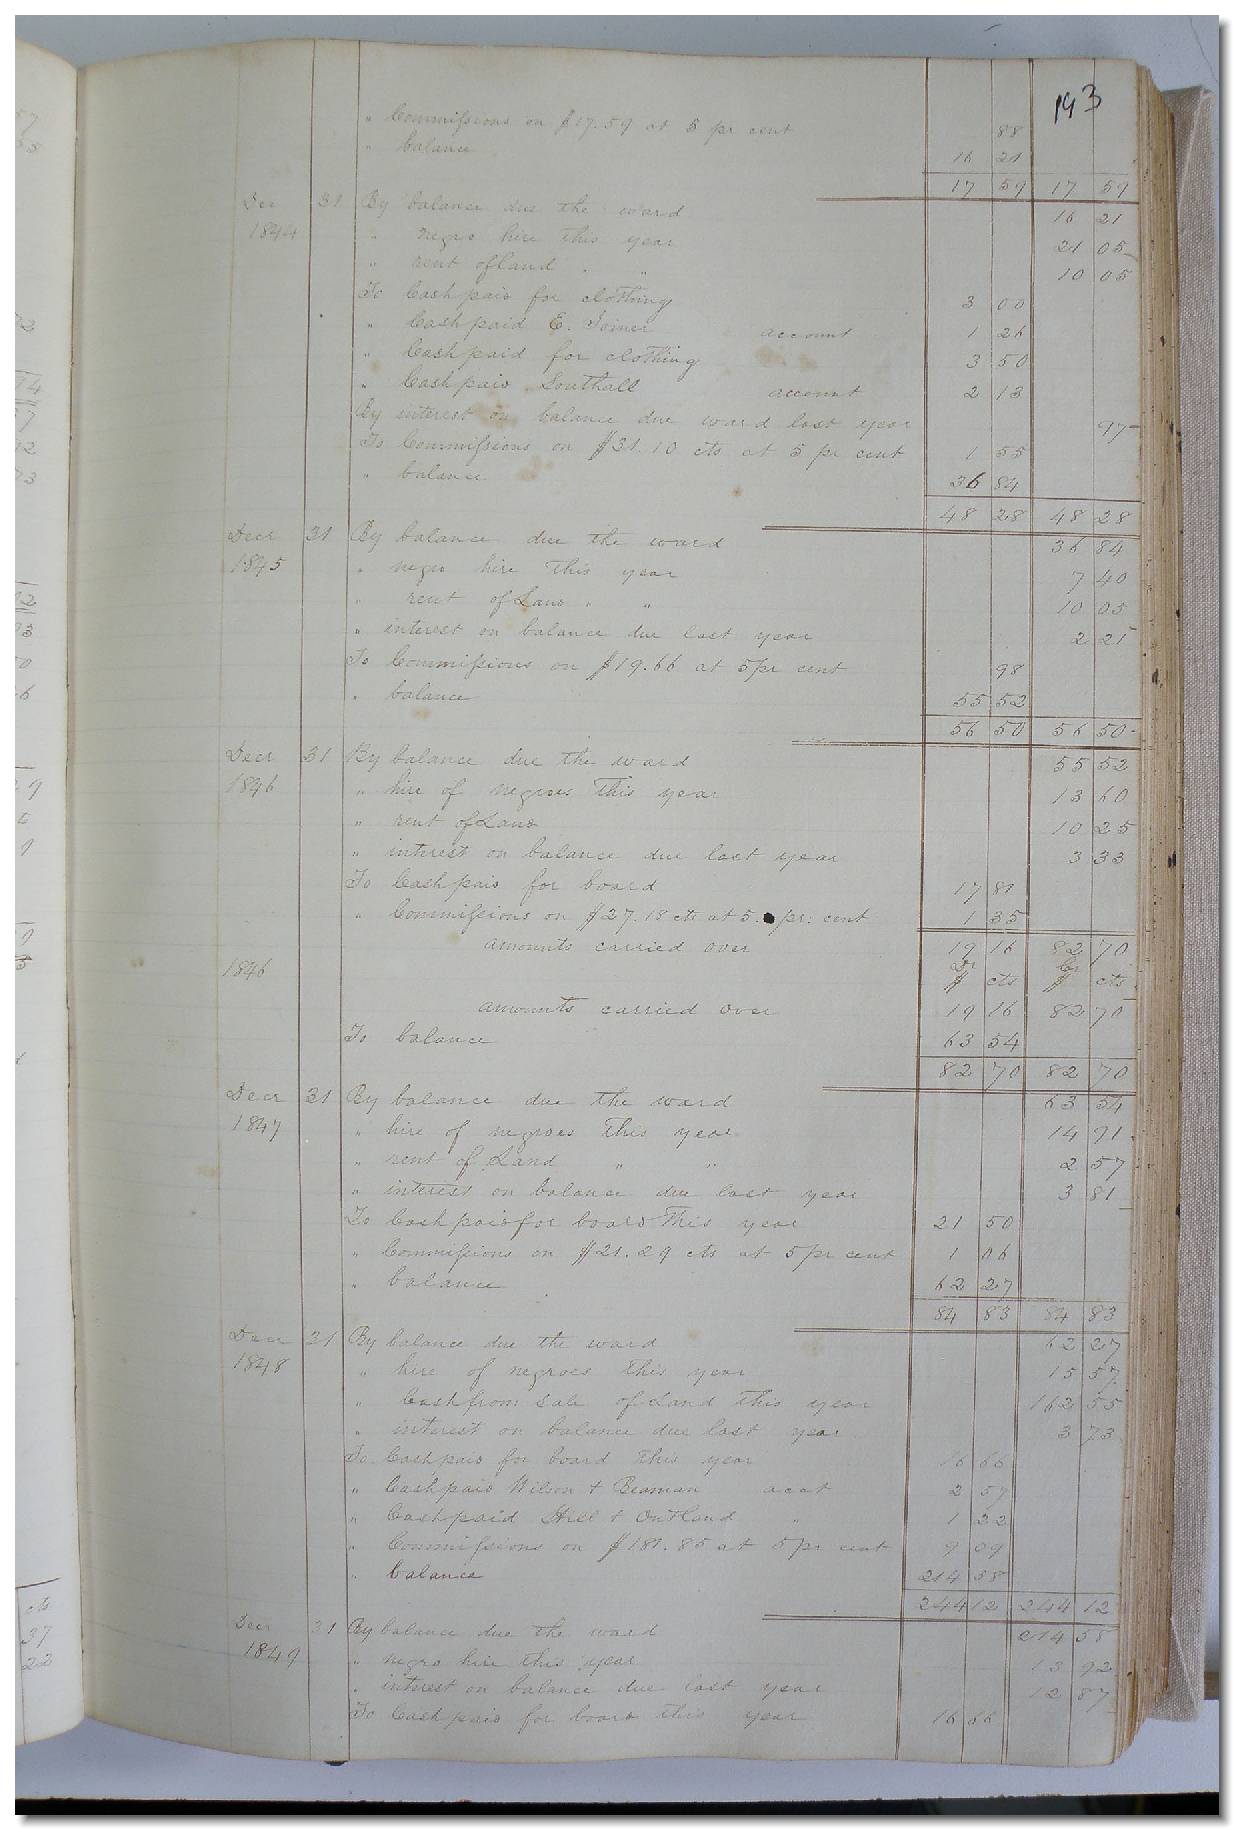 193
" Commissions on $17.59 at 5 pr cent 88
" balance 16 21
17 59 17 59
Decr 31 By balance due the ward 16 21
1844 " negro hire this year 21 05
" rent of land " " 10 05
To Cash paid for clothing 3 00
" Cash paid E. Joiner account 1 26
" Cash paid for clothing 3 50
" Cash paid Southall account 2 13
By interest on balance due ward last year 97
To Commissions on $31.10 cts at 5 pr cent 1 55
" balance 36 84
48 28 48 28
Decr 31 By balance due the ward 36 84
1845 " negro hire this year 7 40
" rent of Land " " 10 05
" interest on balance due last year 2 21
To Commissions on $19.66 at 5 pr cent 98
" balance 55 52
56 50 56 50
Decr 31 By balance due the ward 55 52
1846 " hire of negroes this year 13 60
" rent of Land 10 25
" interest on balance due last year 3 33
To Cash paid for board 17 81
" Commissions on $27.18 cts at 5 pr. cent 1 35
amounts carried over 19 16 82 70
1846 Dr $ cts Cr $ cts
amounts carried over 19 16 82 70
To balance 63 54
82 70 82 70
Decr 31 By balance due the ward 63 54
1847 " hire of negroes this year 14 91
" rent of Land " " 2 57
" interest on balance due last year 3 81
To Cash paid for board this year 21 50
" Commissions on $21.29 cts at 5 pr cent 1 06
" balance 62 27
84 83 84 83
Decr 31 By balance due the ward 62 27
1848 " hire of negroes this year 15 57
" Cash from sale of Land this year 162 55
" interest on balance due last year 3 73
To Cash paid for board this year 16 66
" Cash paid Wilson & Beaman acct 2 57
" Cash paid Hill & Outland " 1 22
" Commissions on $181.85 at 5 pr cent 9 09
" balance 214 58
244 12 244 12
Decr 31 By balance due the ward 214 58
1849 " negro hire this year 13 92
" interest on balance due last year 12 87
To Cash paid for board this year 16 66